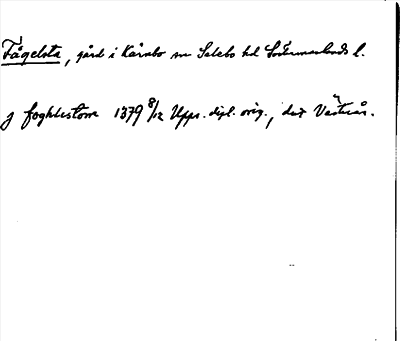 Fågelsta, gård i Kärnbo sn Selebo hd Södermanlands l.
j foghlistom 1379 8/12 Upps. dipl. orig., dat Västerås.